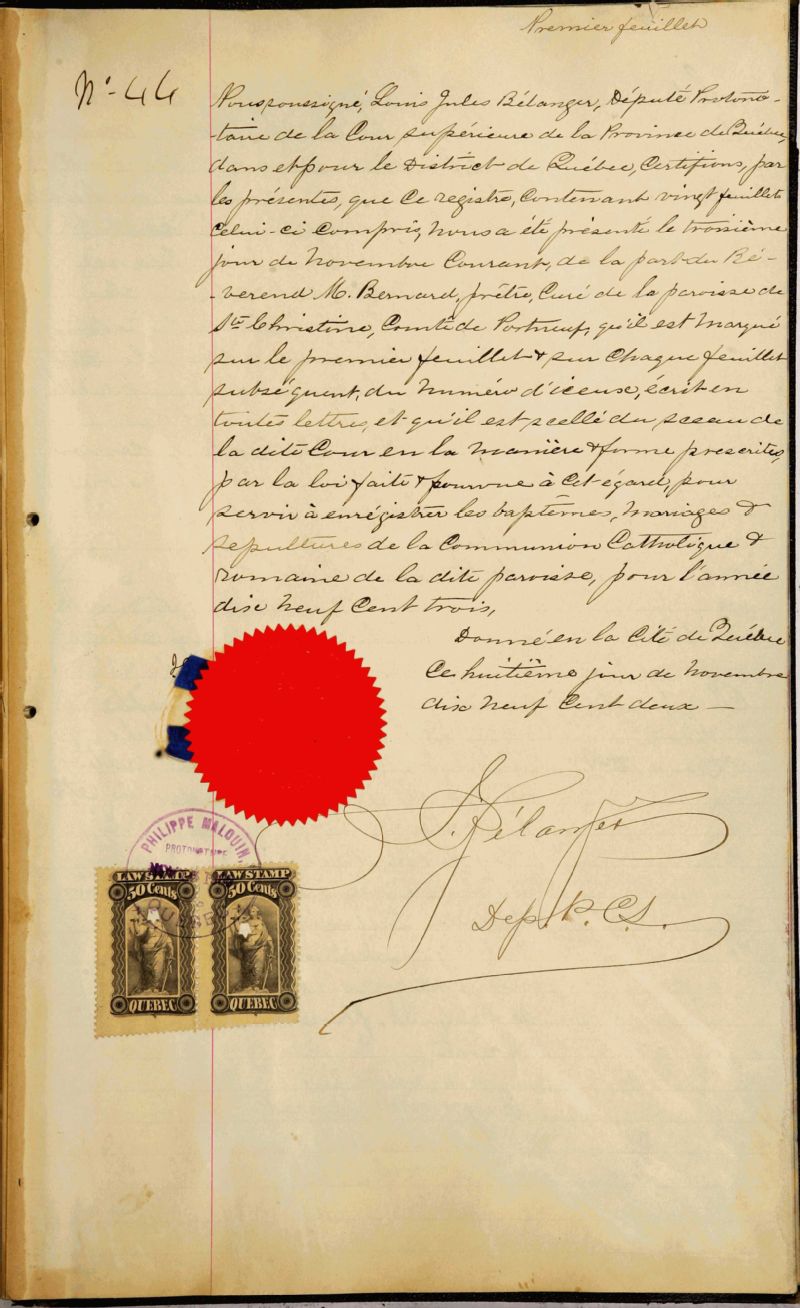 Premier feuillet
No. 44
Nous soussigné, Louis Jules Bélanger, Député Protono-
-taire de la Cour supérieure de la Province de Québec,
dans et pour le District de Québec, Certifions, par
les présentes, que ce registre, contenant vingt feuillets
celui-ci compris, nous a été présenté le troisième
jour de Novembre Courant, de la part du Ré-
-verend M. Bernard, prêtre, Curé de la paroisse de
Ste Christine, Comté de Portneuf, qu'il est marqué
sur le premier feuillet & sur chaque feuillet
subséquent, du numéro d'iceux, écrit en
toutes lettres, et qu'il est scellé du sceau de
la dite Cour en la manière & forme prescrites,
par la loi faite & pourvue à cet égard, pour
servir à enrégistrer les baptêmes, mariages &
sepultures de la Communion Catholique &
romaine de la dite paroisse, pour l'année
dix neuf Cent trois,
Donné en la Cité de Québec
Ce huitième jour de Novembre
dix neuf Cent deux —
J. Bélanger
Dep. P. C. S.
PHILIPPE MALOUIN,
PROTONOTAIRE
QUEBEC
LAW STAMP LAW STAMP
50 Cents 50 Cents
QUEBEC QUEBEC